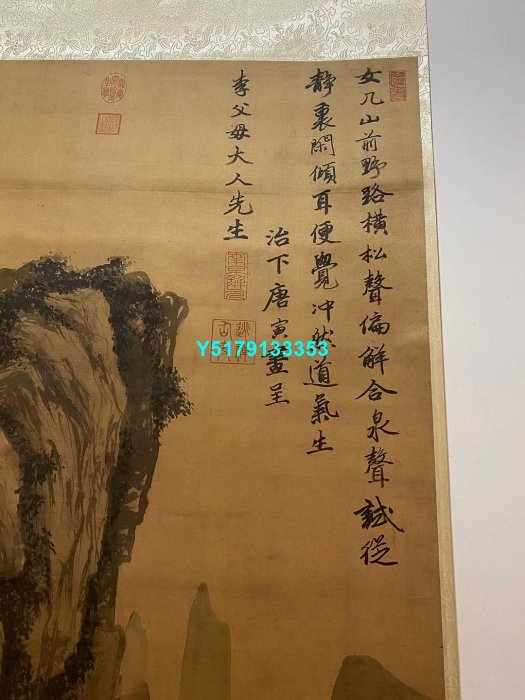 女几山前野路橫松聲偏解合泉聲試從
靜裏閑傾耳便覺冲然道氣生
治下唐寅畫呈
李父母大人先生
Y5179133353